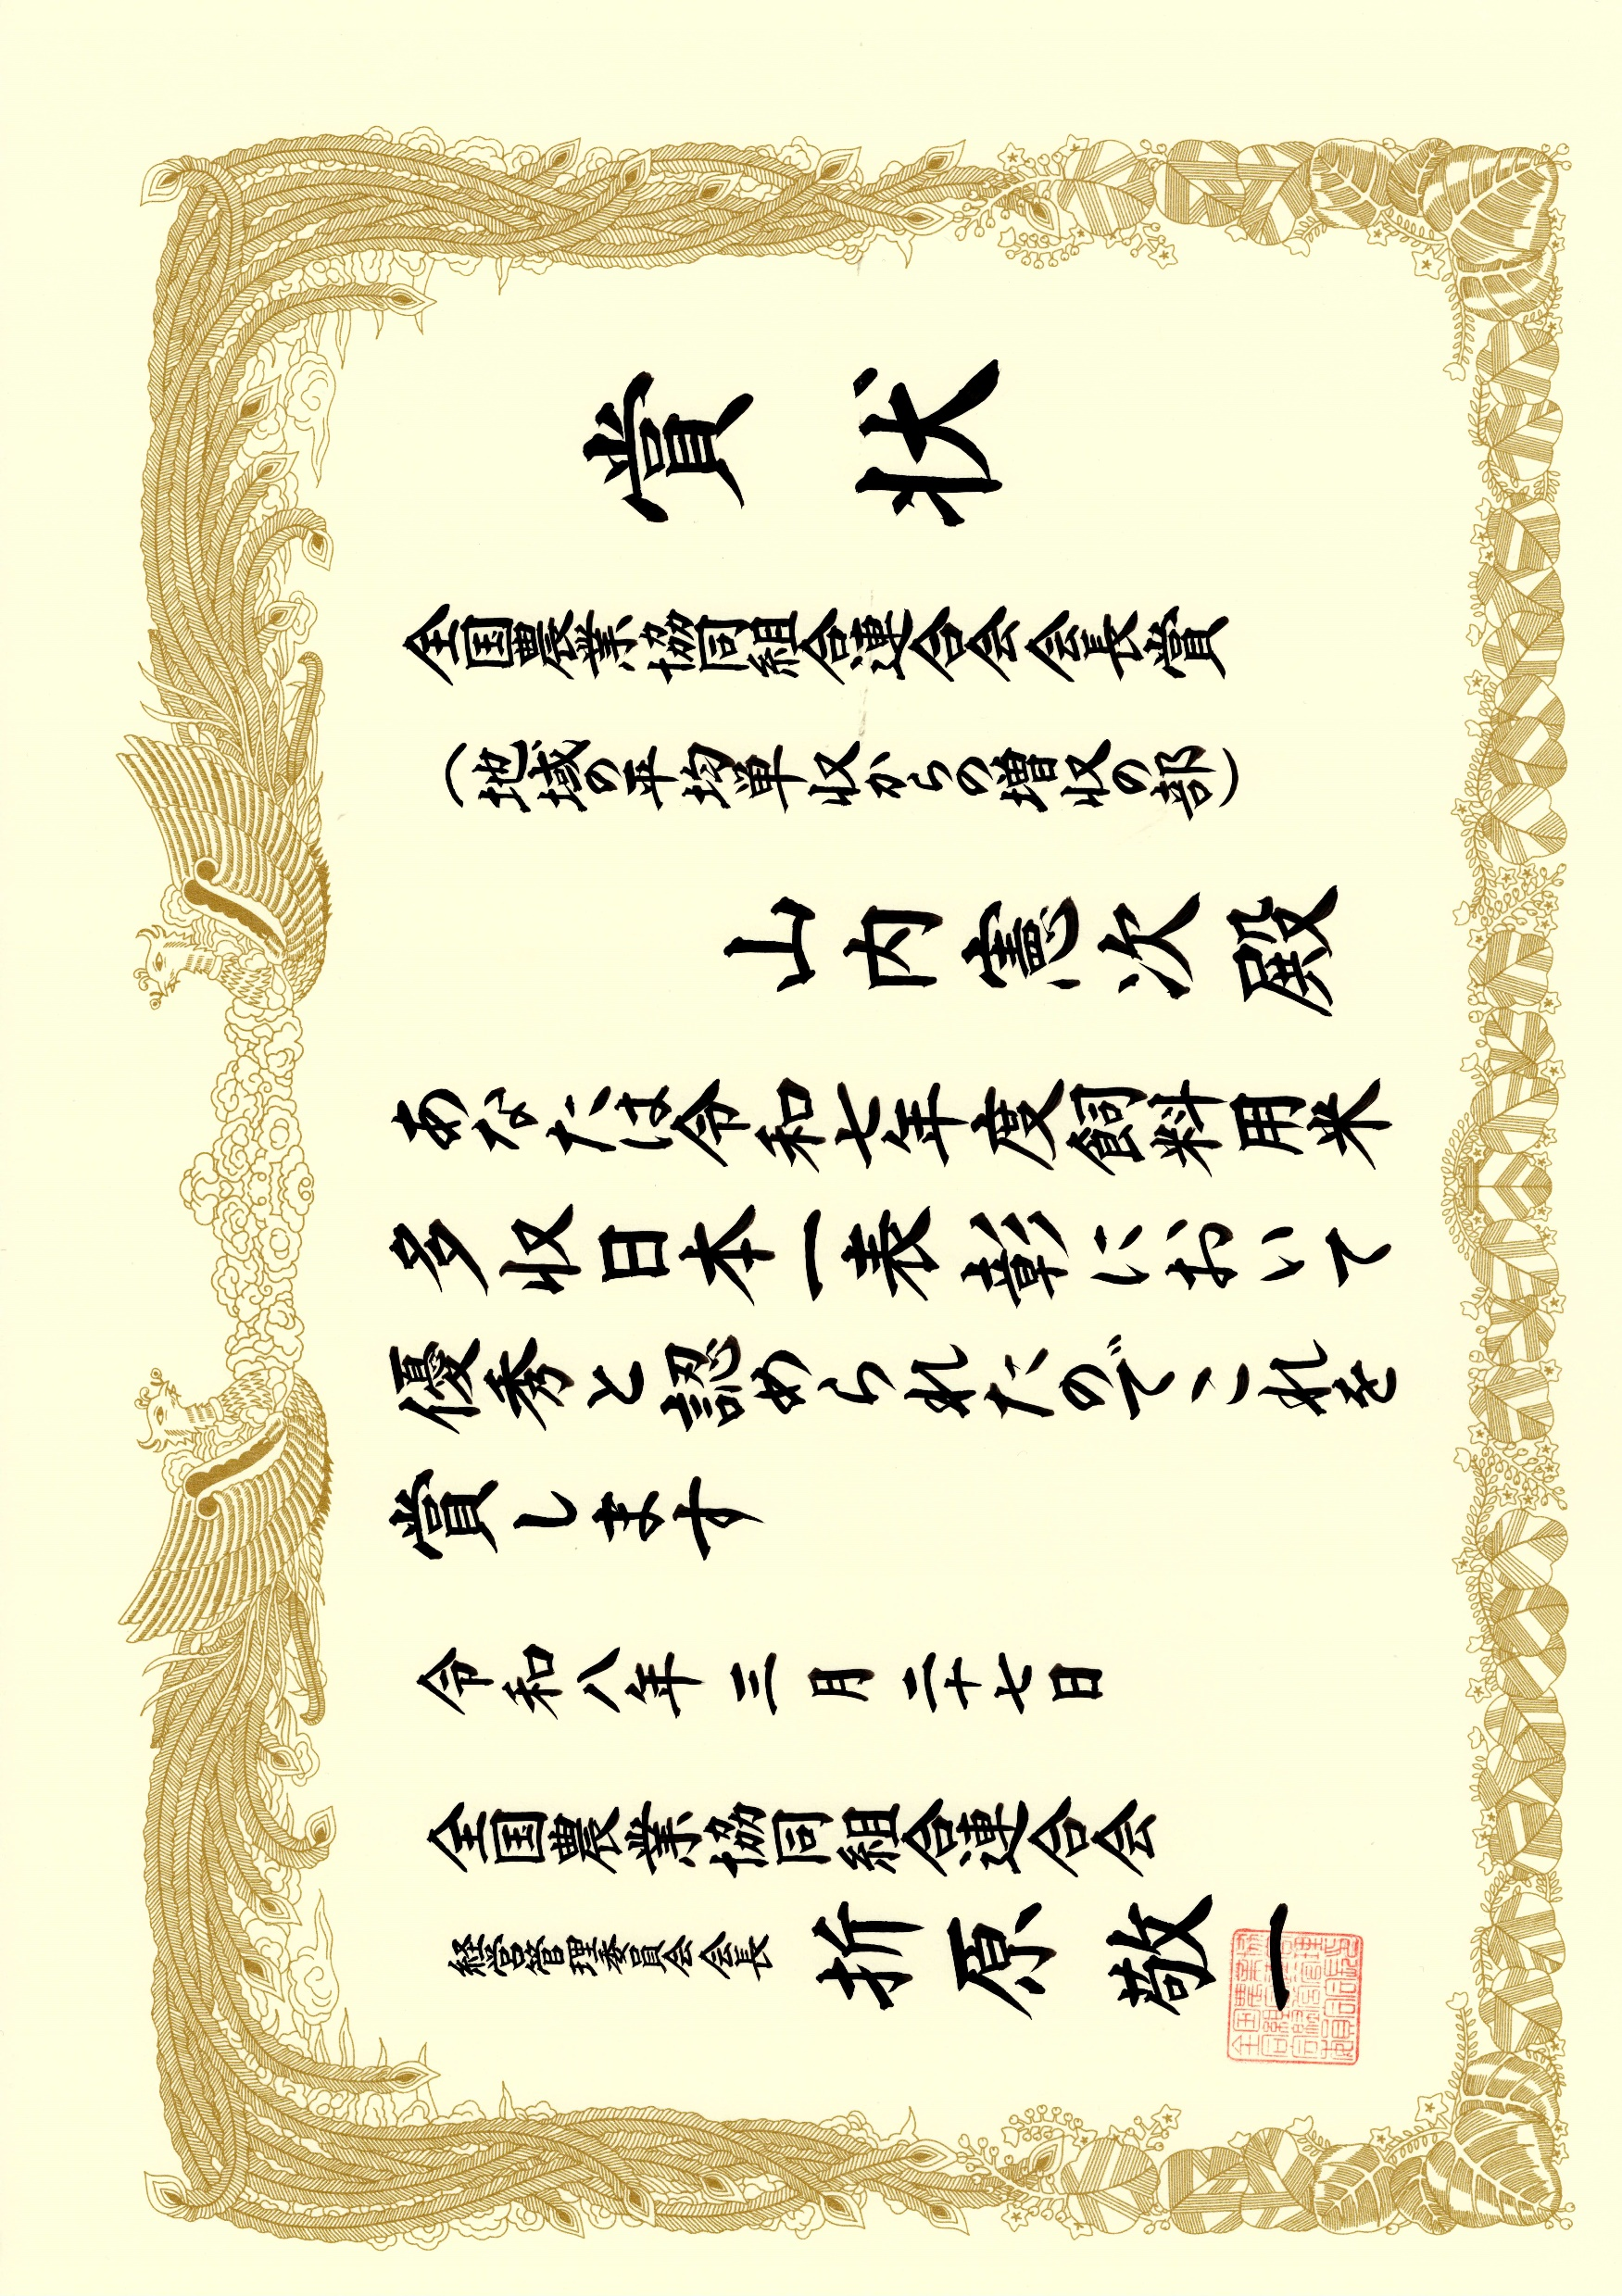 賞状
全国農業協同組合連合会会長賞
（地域の平均単収からの増収の部）
山内憲次殿
あなたは令和七年度飼料用米
多収日本一表彰において
優秀と認められたのでこれを
賞します
令和八年三月二十七日
全国農業協同組合連合会
経営管理委員会会長 折原敬一